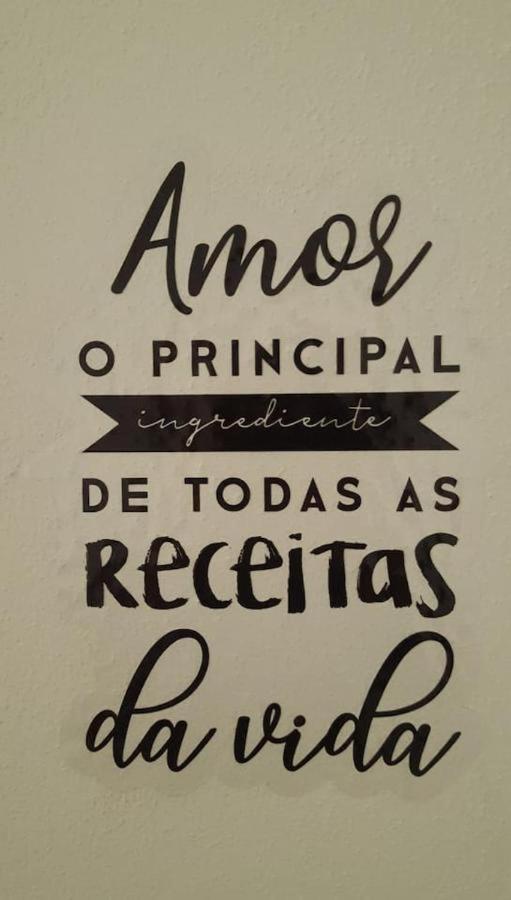 Amor
O PRINCIPAL
ingrediente
DE TODAS AS
ReCeiTaS
da vida